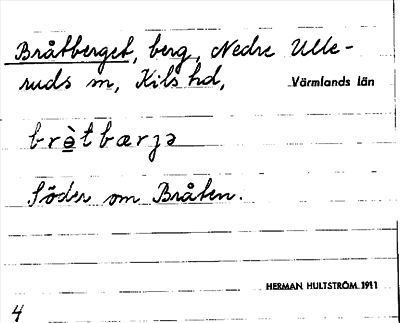 Bråtberget, berg, Nedre Ulle-
ruds sn, Kils hd, Värmlands län
brə̀tbærjə
Söder om Bråten.
HERMAN HULTSTRÖM 1911
4